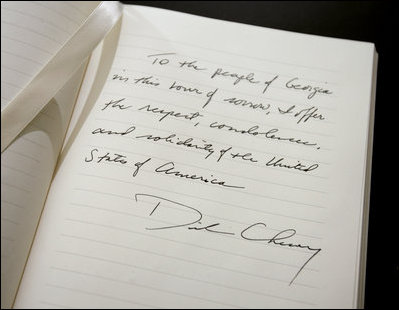 To the people of Georgia
in this hour of sorrow, I offer
the respect, condolences,
and solidarity of the United
States of America
Dick Cheney